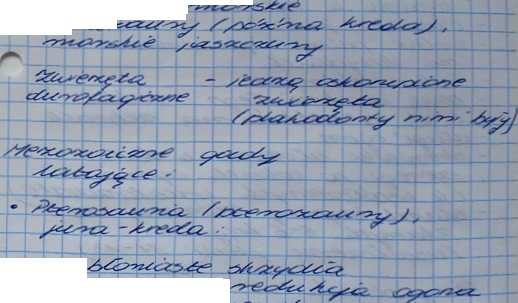 morskie
zaury (późna kreda),
morskie jaszczury
zwierzęta - jedzą oskorupione
durofagiczne zwierzęta
(plakodonty nimi były)
Mezozoiczne gady
latające.
• Pterosauria (pterozaury),
jura-kreda:
błoniaste skrzydła
redukcja ogona